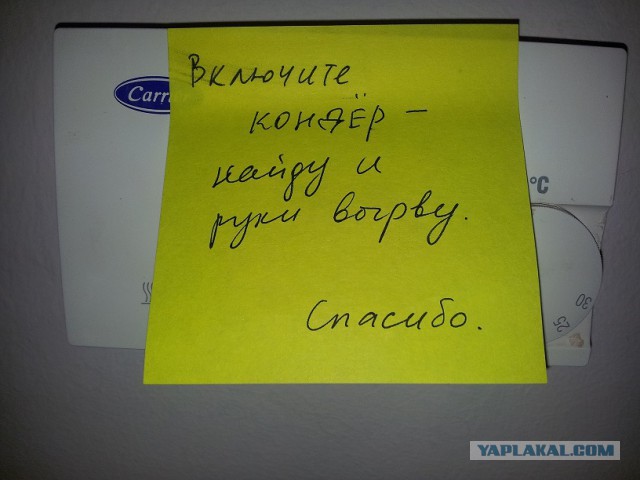 Включите
Carri
кондёр –
найду и
°C
руки вырву.
30
25
Спасибо.
YAPLAKAL.COM